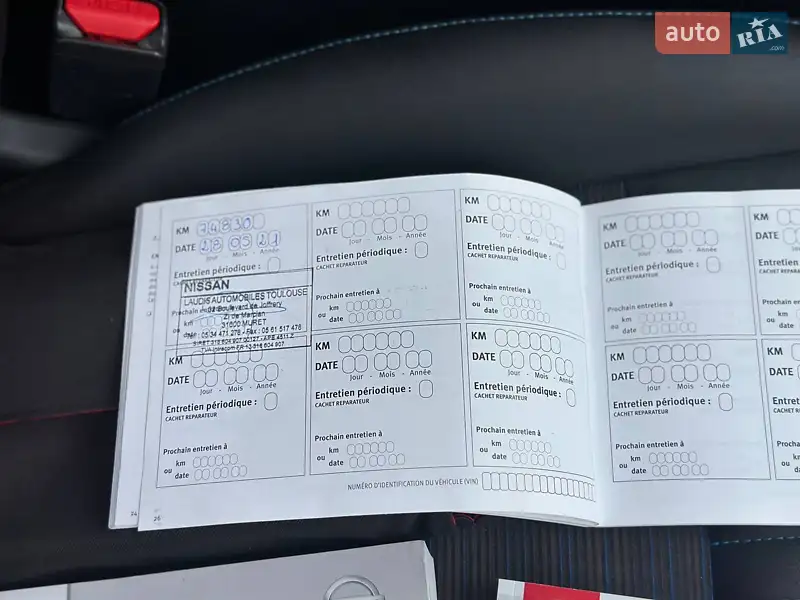 PRESS
auto RIA
.com
KM 74830
DATE 28 05 21
Jour - Mois - Année
Entretien périodique :
NISSAN
LAUDIS AUTOMOBILES TOULOUSE
Prochain
Boulevard de Joffrery
km
ZI de Marclan
31600 MURET
ou
date
Tél : 05 34 471 276 - Fax : 05 61 517 476
KM
DATE
Jour - Mois - Année
Entretien périodique :
CACHET REPARATEUR
Prochain entretien à
km
ou
date
KM
DATE
Jour - Mois - Année
Entretien périodique :
CACHET REPARATEUR
Prochain entretien à
km
ou
date
KM
DATE
Jour - Mois - Année
Entretien périodique :
CACHET REPARATEUR
Prochain entretien à
km
ou
date
KM
DATE
Jour - Mois - Année
Entretien périodique :
CACHET REPARATEUR
Prochain entretien à
km
ou
date
KM
DATE
Jour - Mois - Année
Entretien périodique :
CACHET REPARATEUR
Prochain entretien à
km
ou
date
NUMÉRO D'IDENTIFICATION DU VÉHICULE (VIN)
24
26
KM
DATE
Jour - Mois - Année
Entretien périodique :
CACHET REPARATEUR
Prochain entretien à
km
ou
date
KM
DATE
Jour - Mois - Année
Entretien périodique :
CACHET REPARATEUR
Prochain entretien à
km
ou
date
KM
DATE
Entretien
CACHET REPAR
Prochain
km
ou
date
KM
DATE
Entretie
CACHET REPA
Prochain
km
ou
date